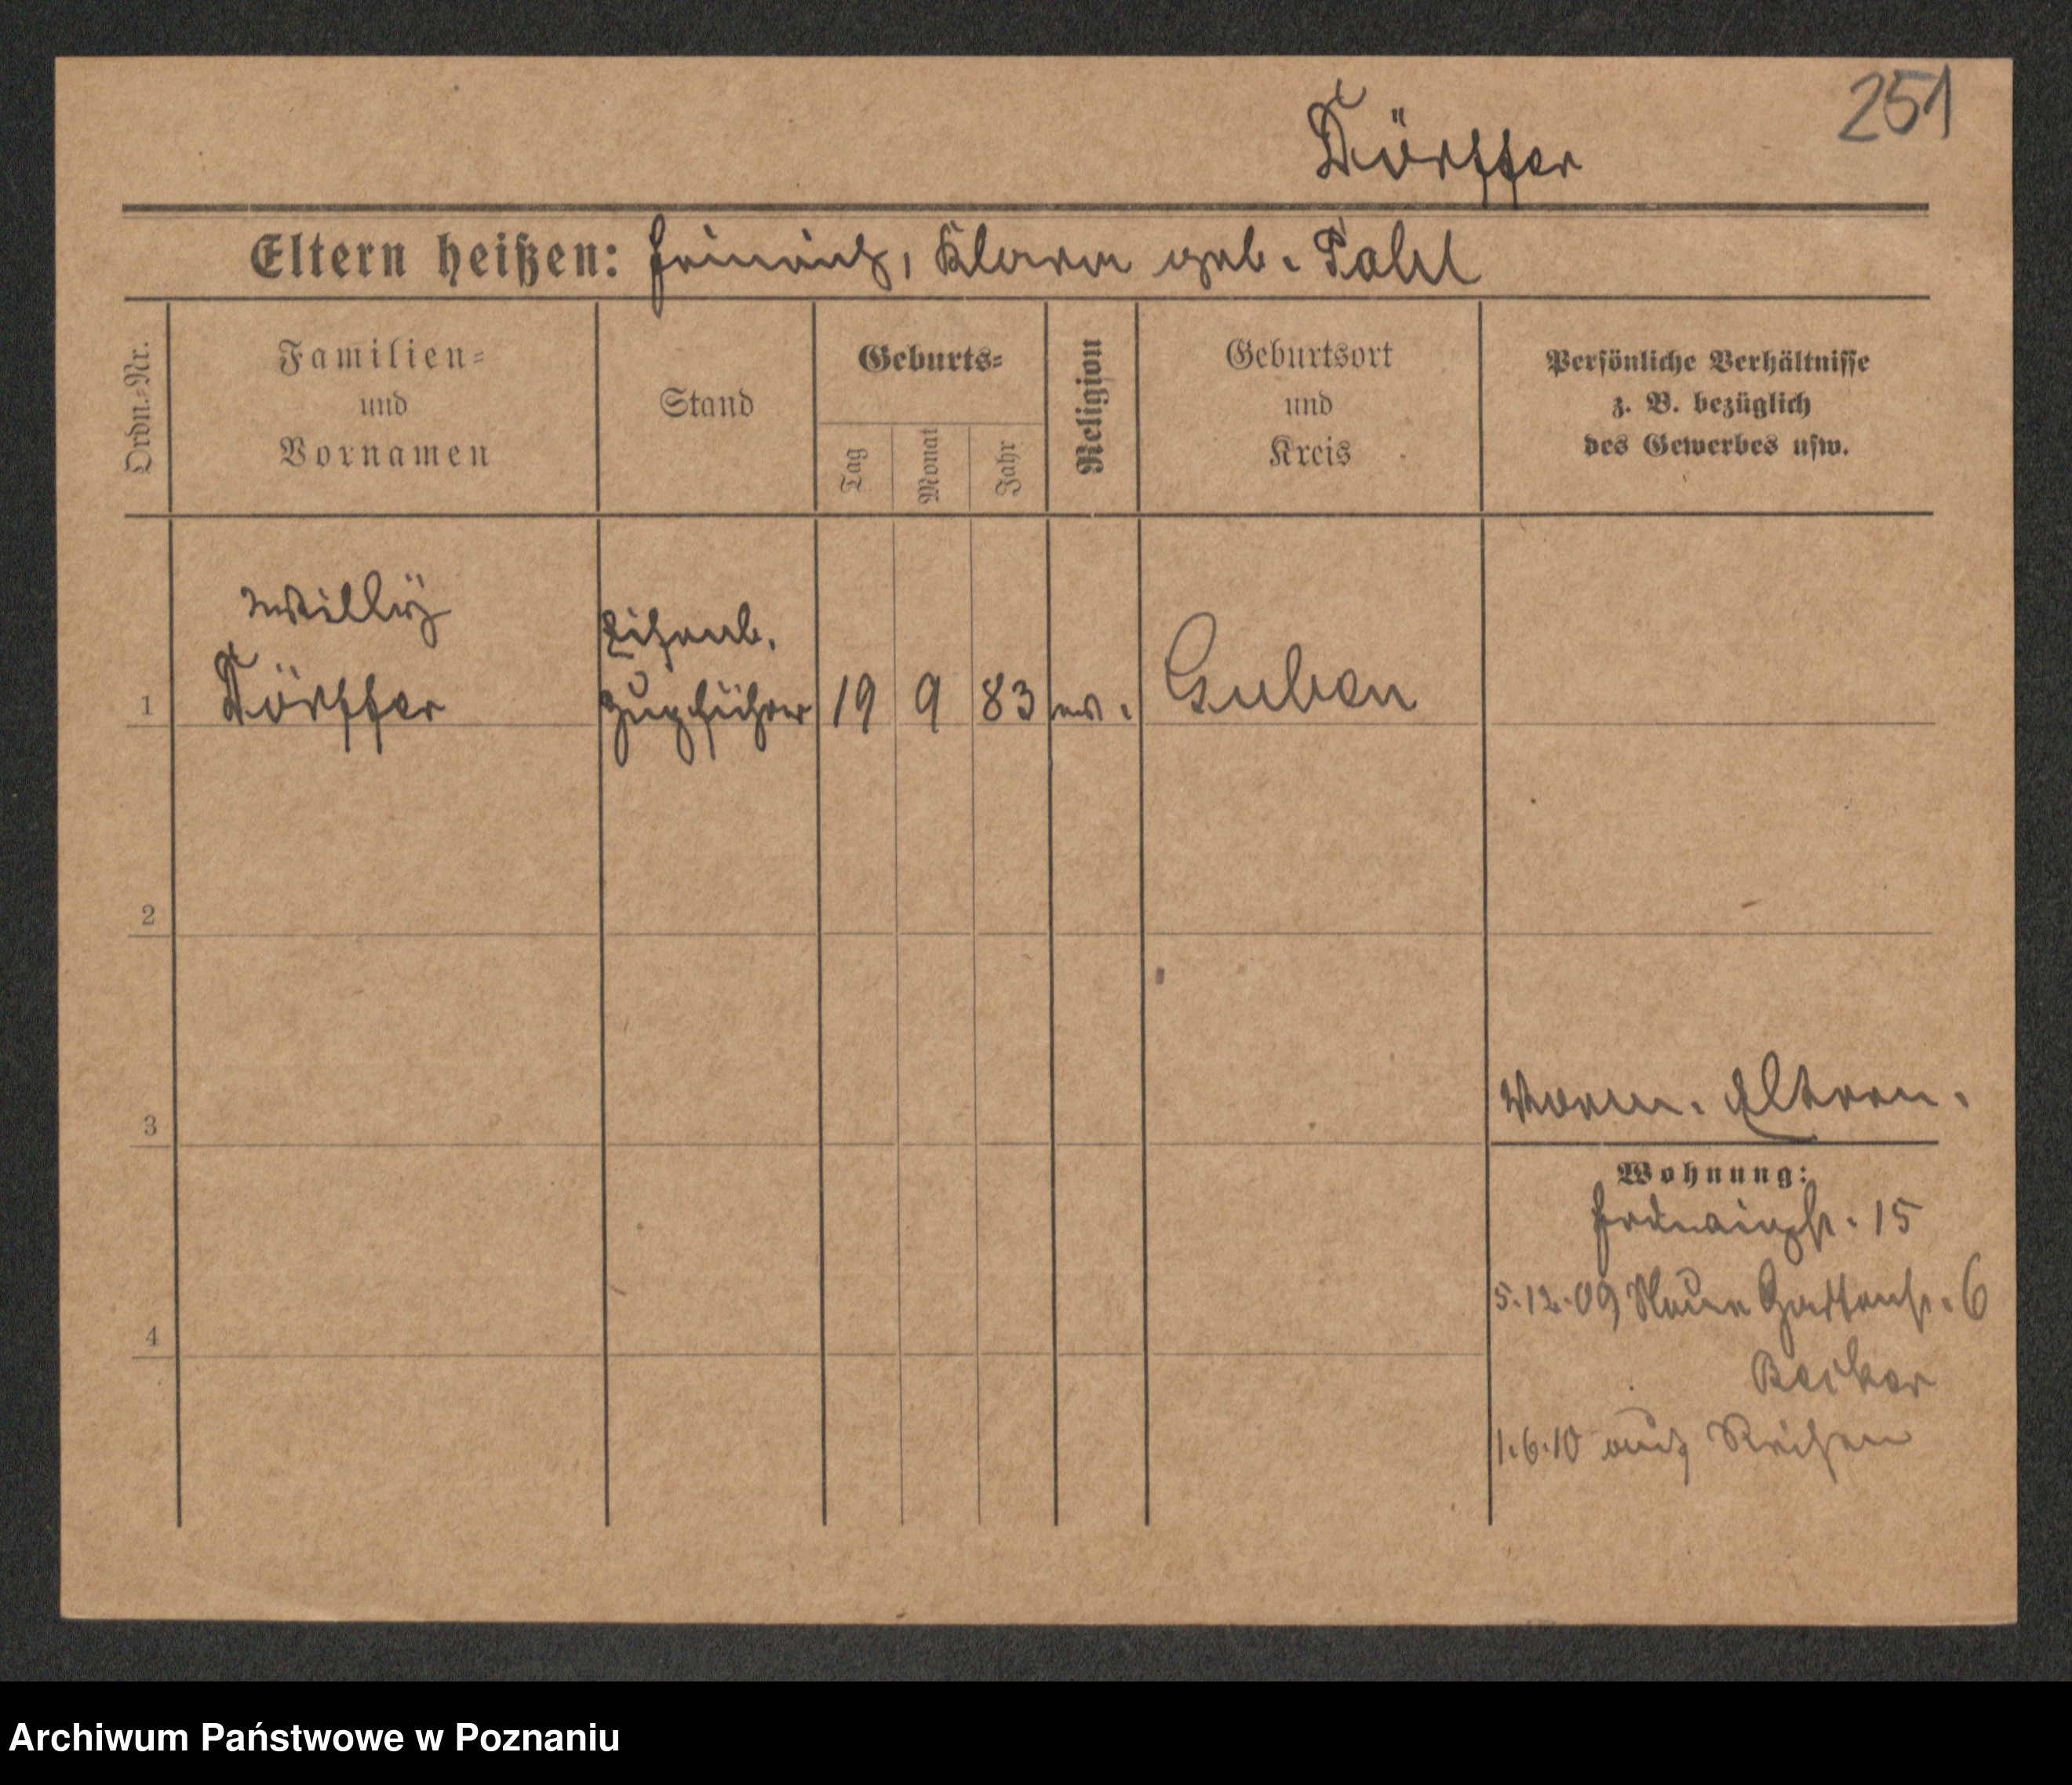 251
Dörffer
Eltern heißen: Heinrich, Klara geb. Pahl
Ordn.-Nr.
Familien-
und
Vornamen
Stand
Geburts-
Tag
Monat
Jahr
Religion
Geburtsort
und
Kreis
Persönliche Verhältnisse
z. B. bezüglich
des Gewerbes usw.
Willy
Dörffer
Eisenb.
Zugführer
1
19
9
83
ev.
Guben
2
3
Verm. Eltern.
Wohnung:
15
4
5.12.09 Neue Gartenstr. 6
Becker
1.6.10 auf Reisen
Archiwum Państwowe w Poznaniu